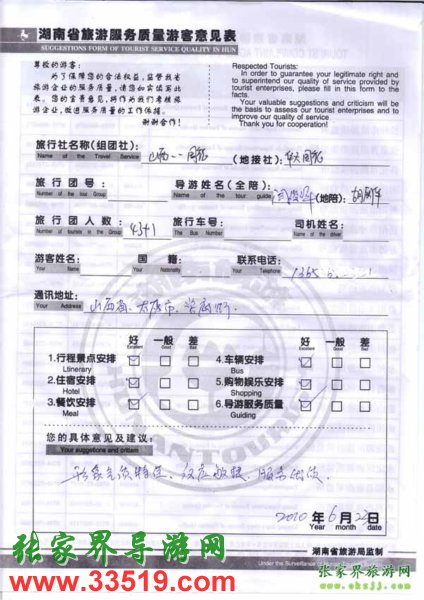 湖南省旅游服务质量游客意见表
SUGGESTIONS FORM OF TOURIST SERVICE QUALITY IN HUN
尊敬的游客:
为了保障您的合法权益,监督我省
旅游企业的服务质量,请您如实填写此
表。您的宝贵意见,将作为我们考核旅
游企业,改进服务质量的工作依据。
谢谢合作!
Respected Tourists:
In order to guarantee your legitimate right and
to superintend our quality of service provided by
tourist enterprises, please fill in this form to the
facts.
Your valuable suggestions and criticism will be
the basis to assess our tourist enterprises and to
improve our quality of service
Thank you for cooperation!
旅行社名称(组团社): 山西 国旅 (地接社):
Name of the Travel Service
旅行团号: 导游姓名(全陪): (地陪):
Number of the tour Group Name of the tour guide
旅行团人数: 43+1 旅行车号: 司机姓名:
Number of tourists in the Group The Bus Number Name of the driver
游客姓名: 国籍: 联系电话:
Your Name Your Nationality Your Telephone
通讯地址: 山西省、太原市
Your Address
好 一般 差 好 一般 差
Excellent Good Bad Excellent Good Bad
1.行程景点安排 4.车辆安排
Ltinerary Bus
2.住宿安排 5.购物娱乐安排
Hotel Shopping
3.餐饮安排 6.导游服务质量
Meal Guiding
您的具体意见及建议:
Your suggestions and critism
服务优质
2010 年 6 月 日
Year month date
湖南省旅游局监制
Under the Surveillance of
HUNAN TOUR
张家界导游网
www.33519.com
张家界旅游网
www.okzjj.com